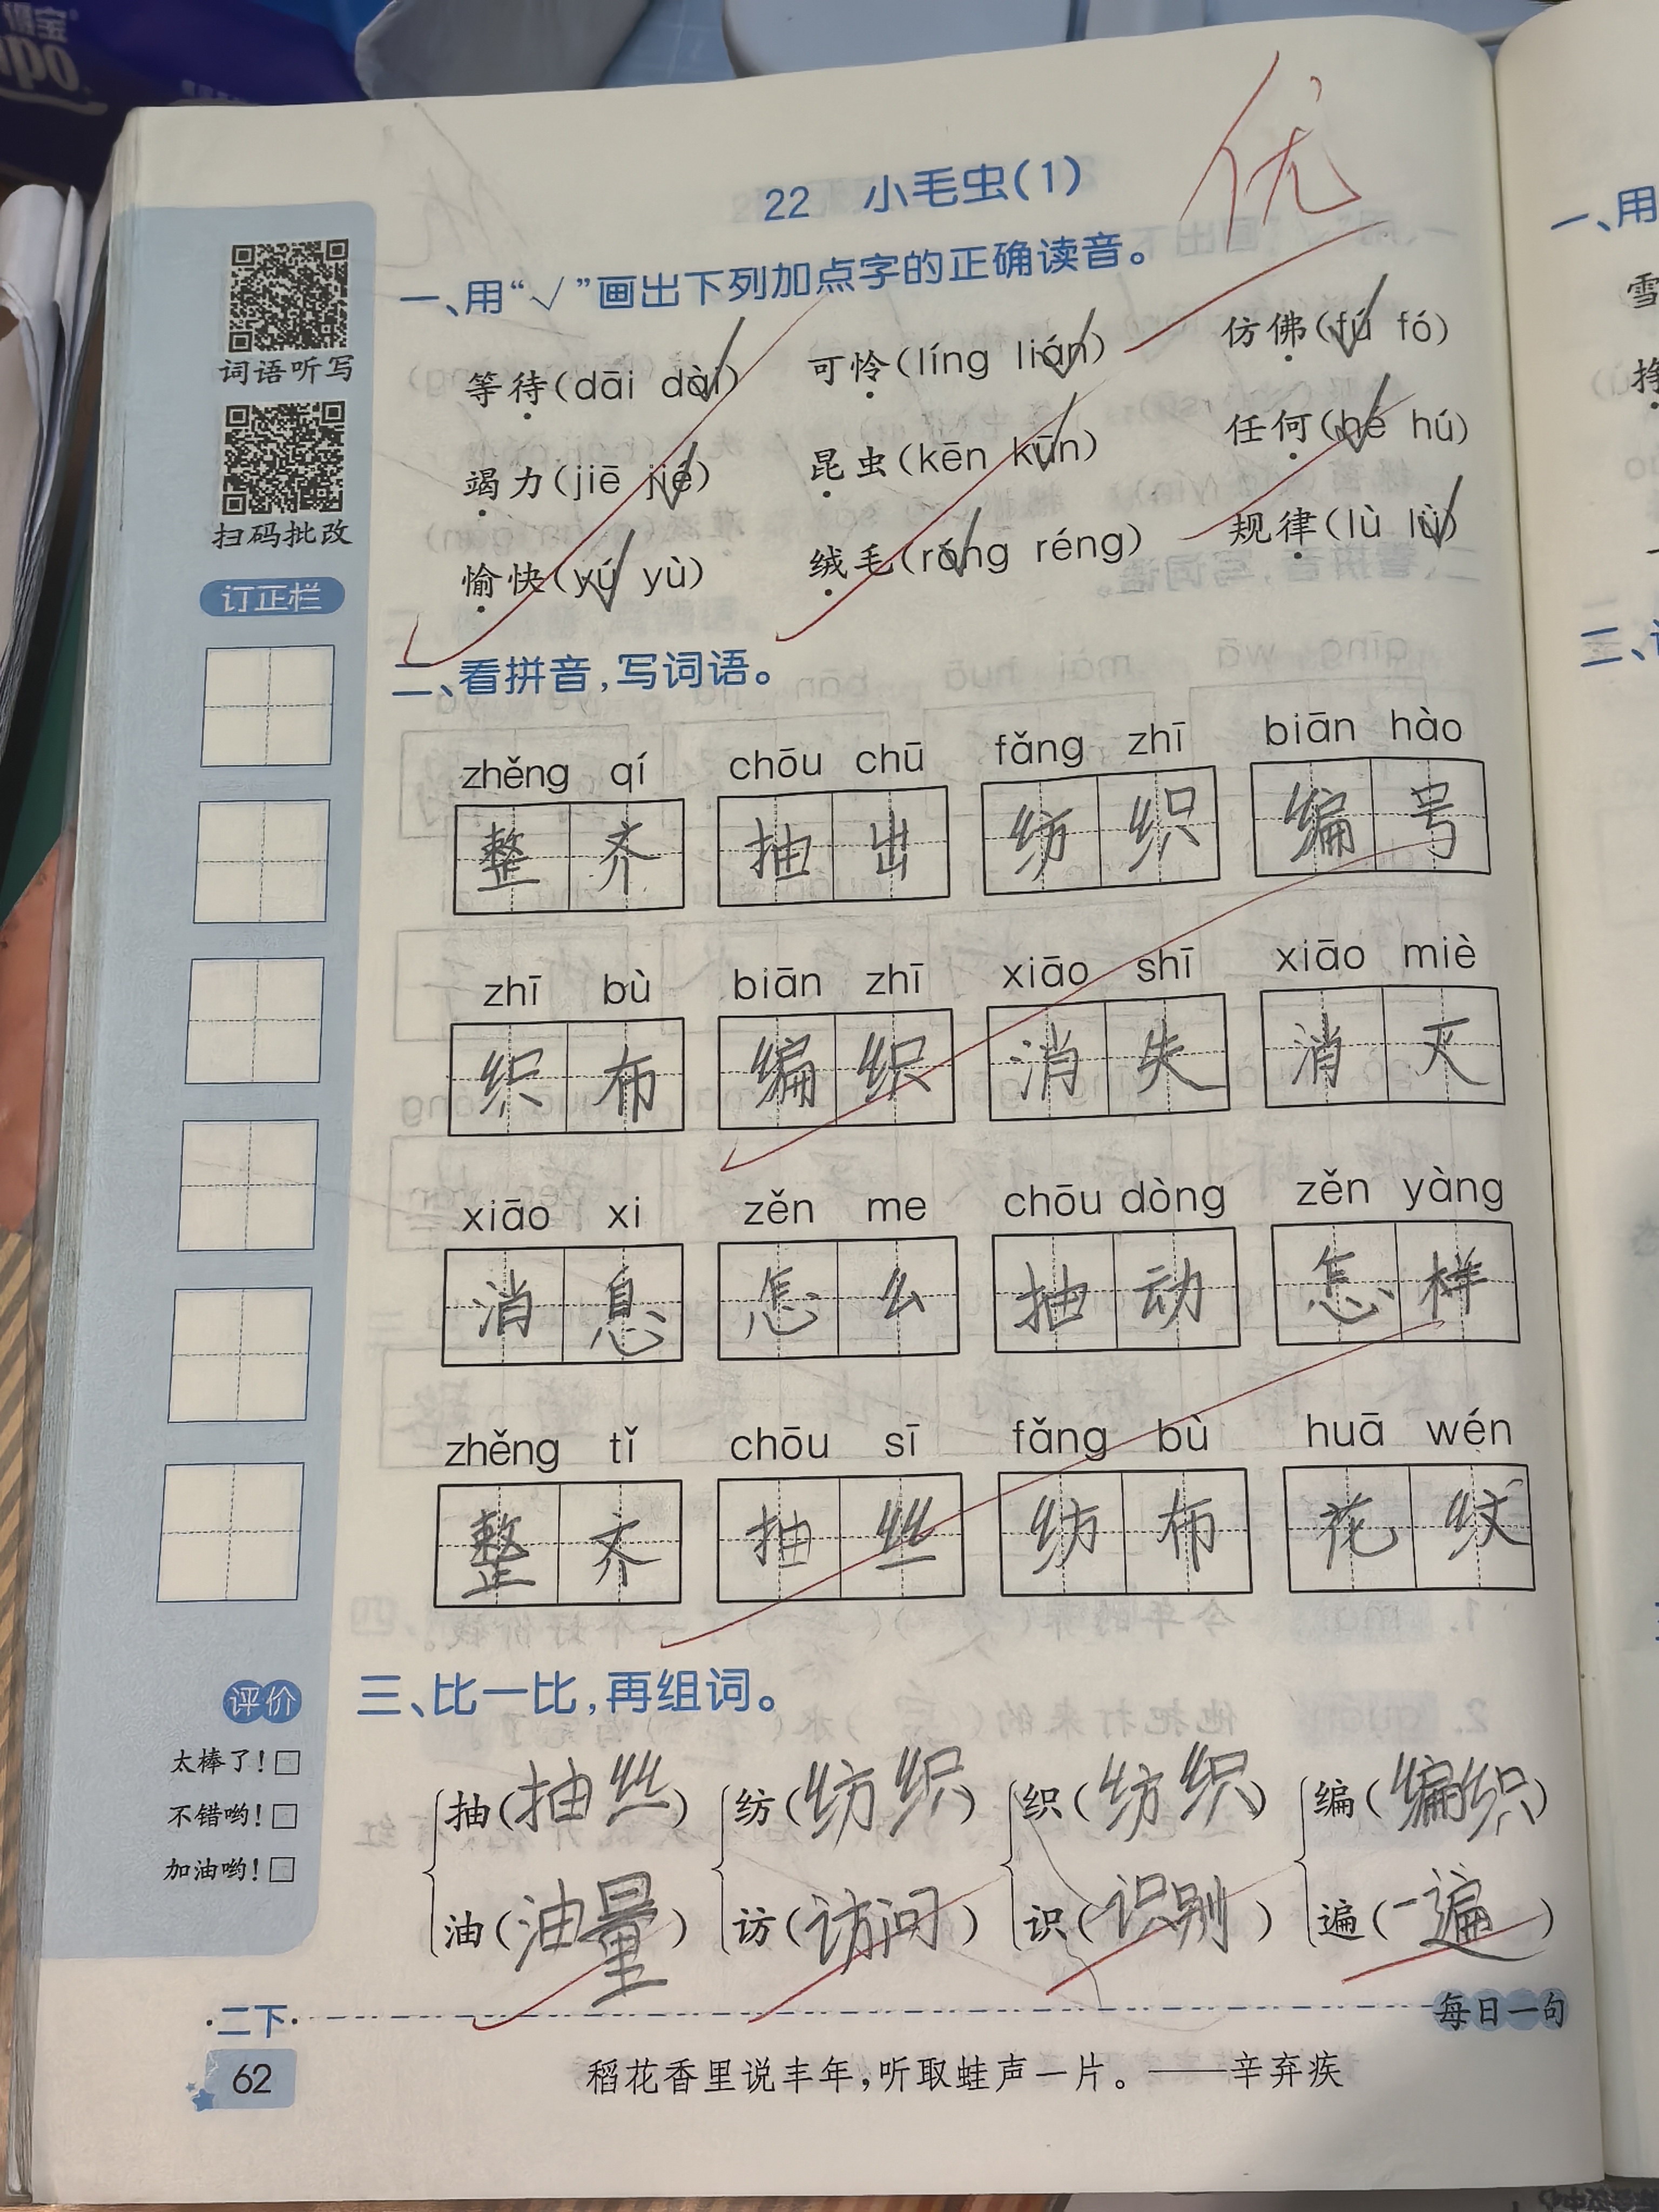 得宝
优
22 小毛虫(1)
一、用“√”画出下列加点字的正确读音。
词语听写
扫码批改
订正栏
等待(dāi dài) 可怜(líng lián) 仿佛(fú fó)
竭力(jiē jié) 昆虫(kēn kūn) 任何(hé hú)
愉快(yú yù) 绒毛(róng réng) 规律(lù lǜ)
二、看拼音,写词语。
zhěng qí chōu chū fǎng zhī biān hào
整齐 抽出 纺织 编号
zhī bù biān zhī xiāo shī xiāo miè
织布 编织 消失 消灭
xiāo xi zěn me chōu dòng zěn yàng
消息 怎么 抽动 怎样
zhěng tǐ chōu sī fǎng bù huā wén
整齐 抽丝 纺布 花纹
三、比一比,再组词。
抽(抽丝) 纺(纺织) 织(纺织) 编(编织)
油(油量) 访(访问) 识(识别) 遍(一遍)
评价
太棒了!□
不错哟!□
加油哟!□
·二下·
62
每日一句
稻花香里说丰年,听取蛙声一片。——辛弃疾
一、用
雪
挣
二、